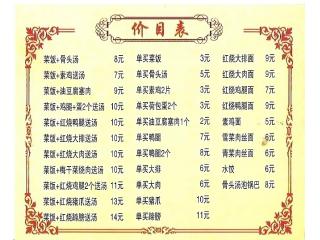 价目表
菜饭+骨头汤 8元 单买菜饭 3元 红烧大排面 9元
菜饭+素鸡送汤 7元 单买骨头汤 5元 红烧大肉面 9元
菜饭+油豆腐塞肉 9元 单买素鸡2片 3元 红烧鸡腿面 9元
菜饭+鸡腿+蛋2个送汤 10元 单买荷包蛋2个 3元 红烧鸭腿面 9元
菜饭+红烧鸭腿送汤 10元 单买油豆腐塞肉1个 2元 素鸡面 5元
菜饭+红烧大排送汤 10元 单买鸭腿 7元 雪菜肉丝面 6元
菜饭+红烧大肉送汤 10元 单买鸭腿2个 8元 青菜肉丝面 6元
菜饭+梅干菜烧肉送汤 10元 单买大排 6元 水饺 6元
菜饭+红烧鸡腿2个送汤 11元 单买大肉 6元 骨头汤泡锅巴 8元
菜饭+红烧猪爪送汤 13元 单买猪爪 10元
菜饭+红烧蹄膀送汤 14元 单买蹄膀 11元